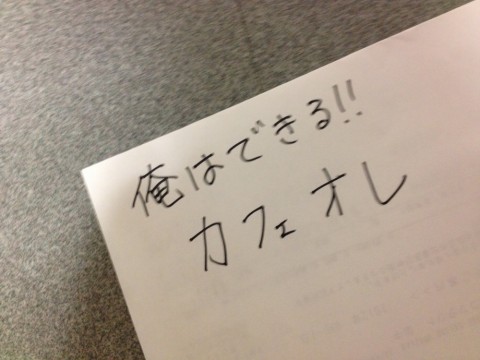 俺はできる!!
カフェオレ